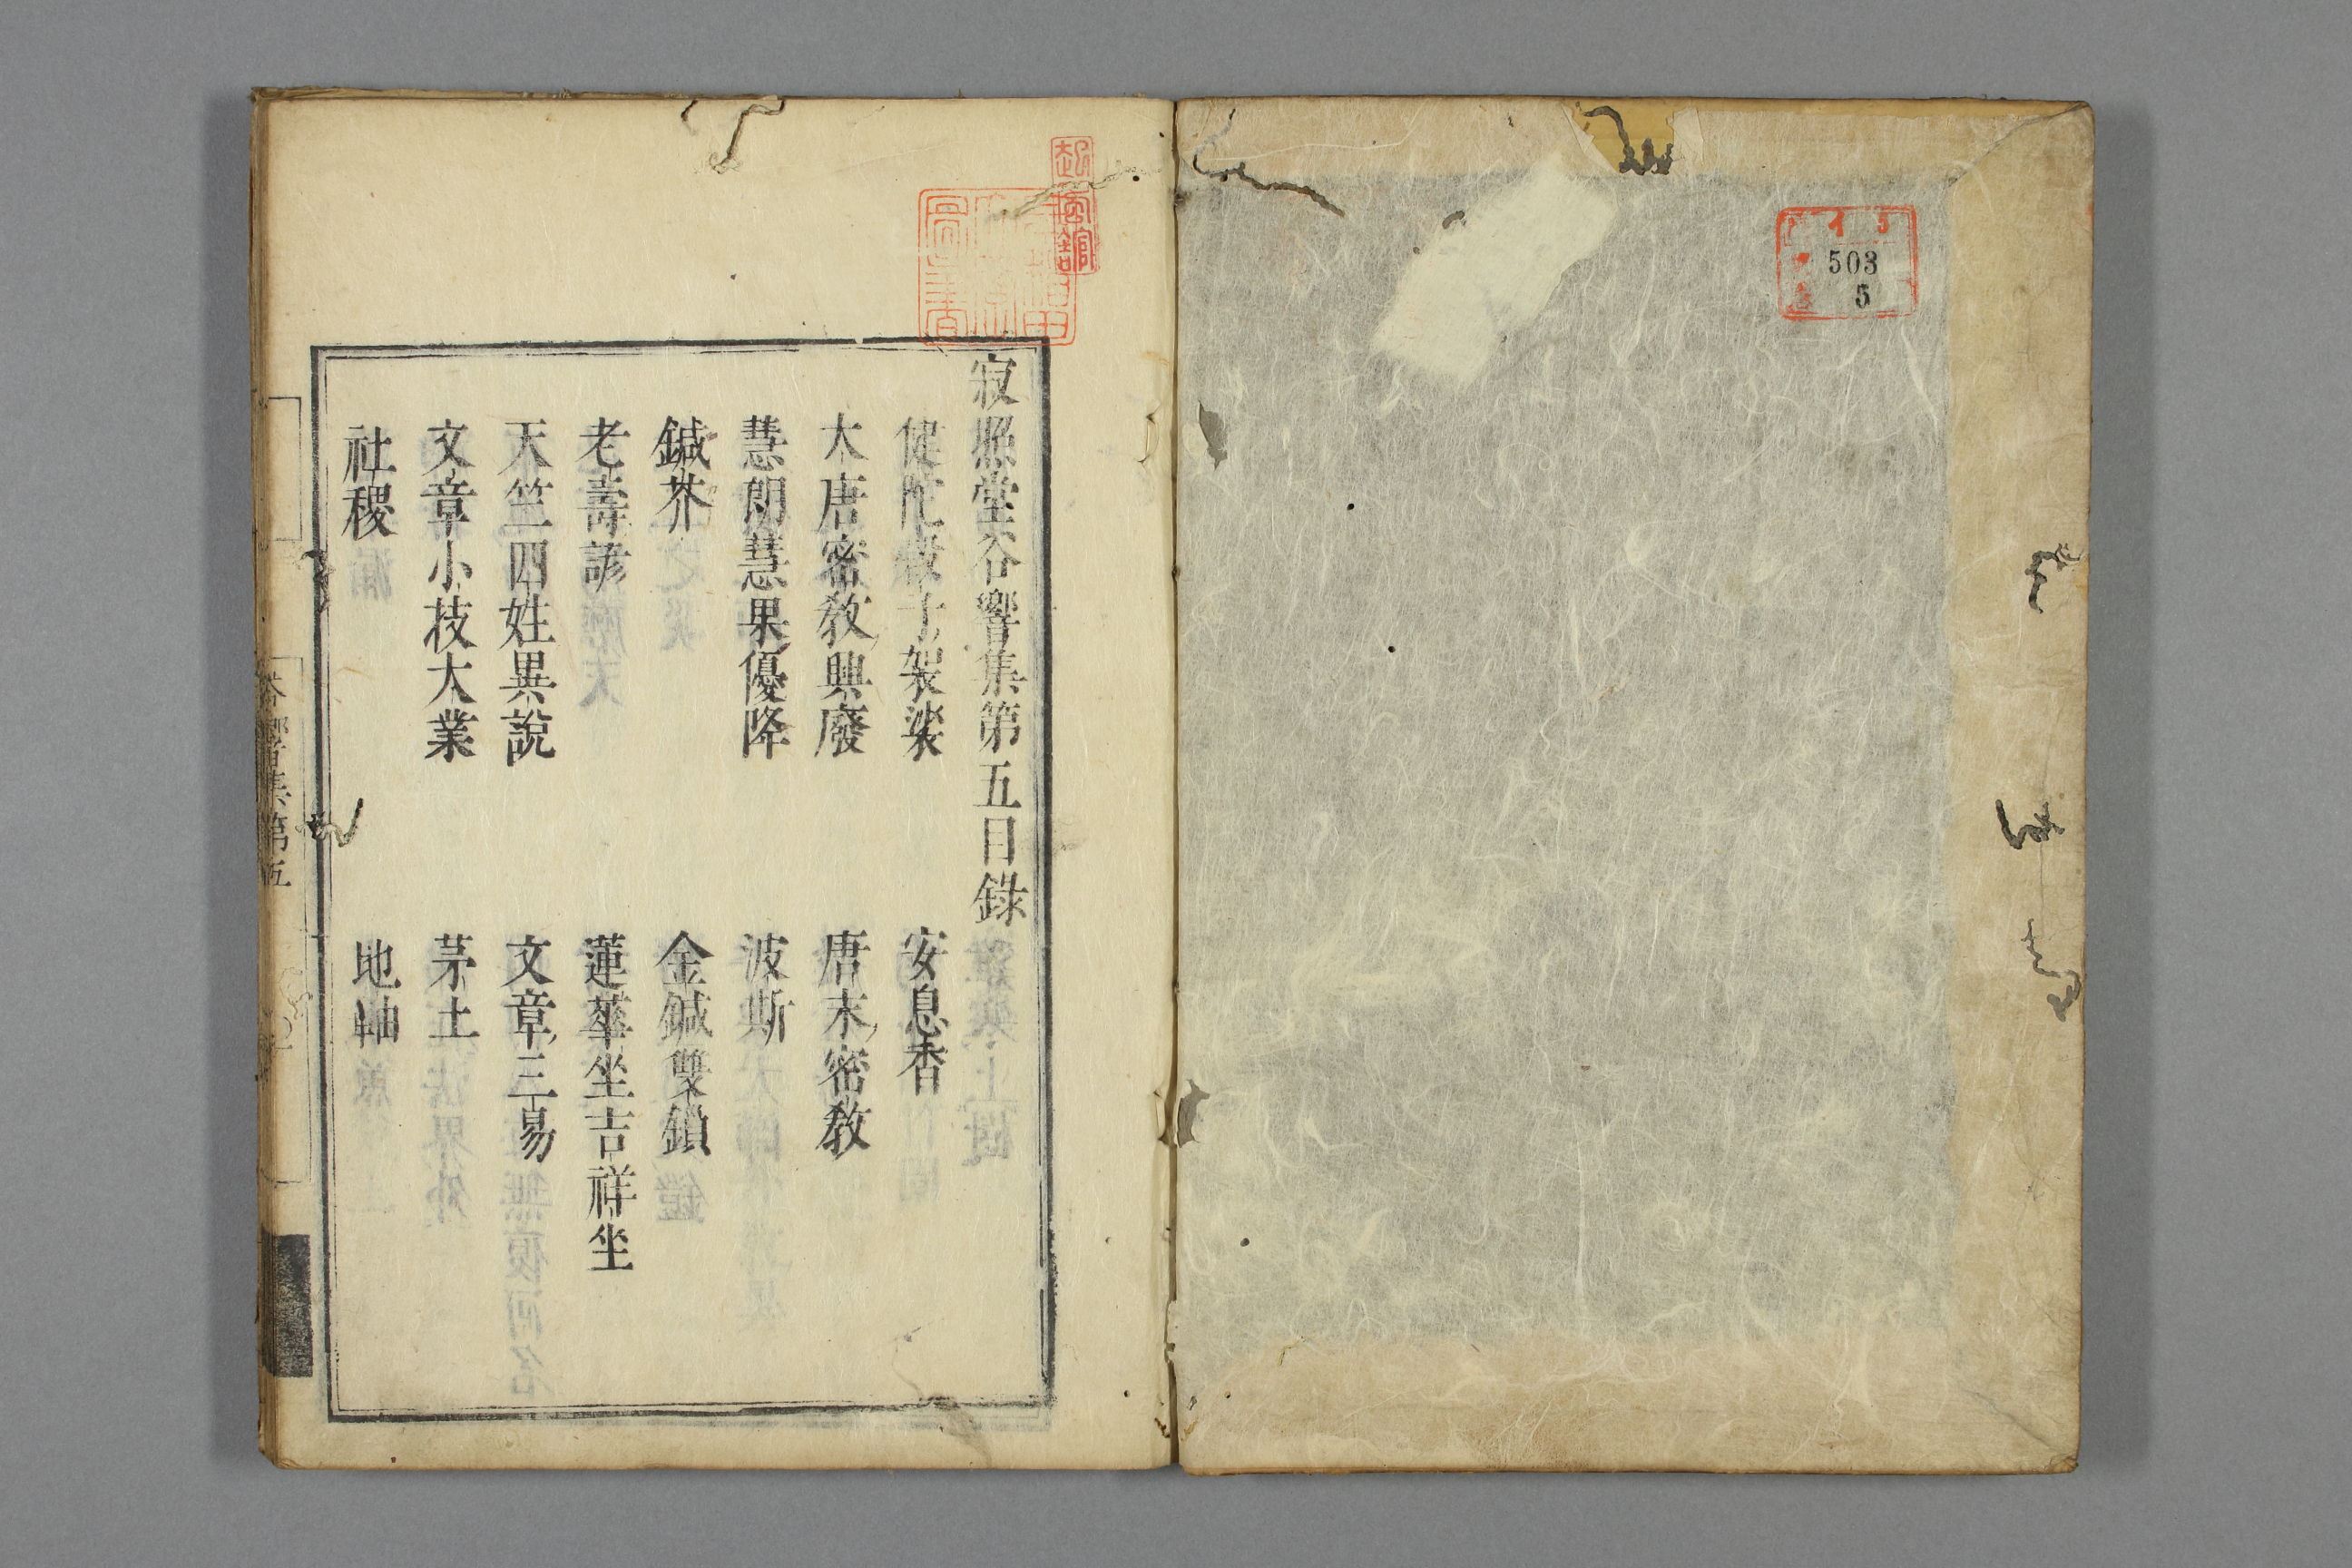 イ 5
503
5
寂照堂谷響集第五目錄
健陀穀子袈裟 安息香
大唐密教興廢 唐末密教
慧朗慧果優降 波斯
鍼芥 金鍼雙鎖
老壽諺 蓮華坐吉祥坐
天竺四姓異說 文章三易
文章小技大業 茅土
社稷 地軸
谷響集第五